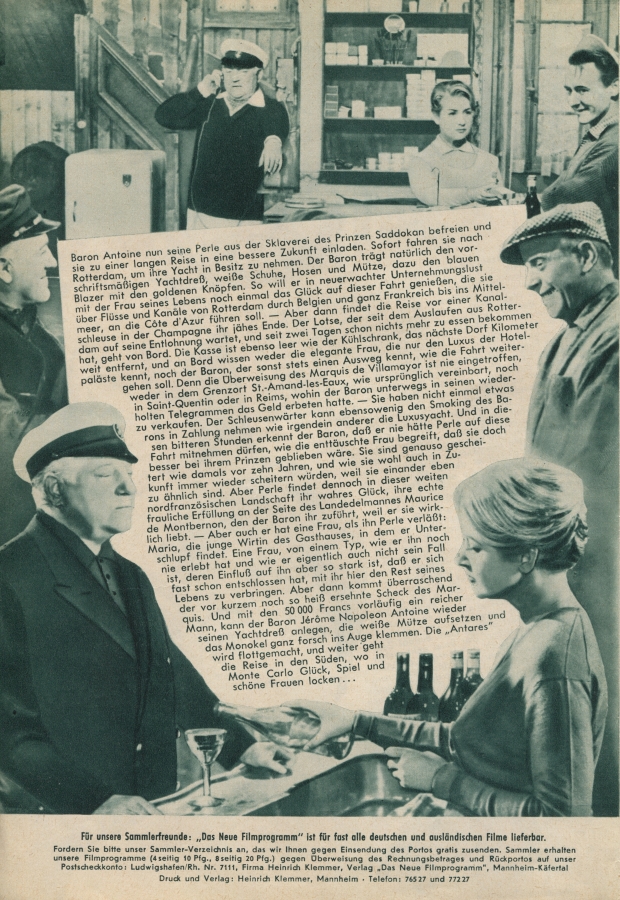 Baron Antoine nun seine Perle aus der Sklaverei des Prinzen Saddokan befreien und
sie zu einer langen Reise in eine bessere Zukunft einladen. Sofort fahren sie nach
Rotterdam, um ihre Yacht in Besitz zu nehmen. Der Baron trägt natürlich den vor-
schriftsmäßigen Yachtdreß, weiße Schuhe, Hosen und Mütze, dazu den blauen
Blazer mit den goldenen Knöpfen. So will er in neuerwachter Unternehmungslust
mit der Frau seines Lebens noch einmal das Glück auf dieser Fahrt genießen, die sie
über Flüsse und Kanäle von Rotterdam durch Belgien und ganz Frankreich bis ins Mittel-
meer, an die Côte d'Azur führen soll. — Aber dann findet die Reise vor einer Kanal-
schleuse in der Champagne ihr jähes Ende. Der Lotse, der seit dem Auslaufen aus Rotter-
dam auf seine Entlohnung wartet, und seit zwei Tagen schon nichts mehr zu essen bekommen
hat, geht von Bord. Die Kasse ist ebenso leer wie der Kühlschrank, das nächste Dorf Kilometer
weit entfernt, und an Bord wissen weder die elegante Frau, die nur den Luxus der Hotel-
paläste kennt, noch der Baron, der sonst stets einen Ausweg kennt, wie die Fahrt weiter-
gehen soll. Denn die Überweisung des Marquis de Villamayor ist nie eingetroffen,
weder in dem Grenzort St.-Amand-les-Eaux, wie ursprünglich vereinbart, noch
in Saint-Quentin oder in Reims, wohin der Baron unterwegs in seinen wieder-
holten Telegrammen das Geld erbeten hatte. — Sie haben nicht einmal etwas
zu verkaufen. Der Schleusenwärter kann ebensowenig den Smoking des Ba-
rons in Zahlung nehmen wie irgendein anderer die Luxusyacht. Und in die-
sen bitteren Stunden erkennt der Baron, daß er nie hätte Perle auf diese
Fahrt mitnehmen dürfen, wie die enttäuschte Frau begreift, daß sie doch
besser bei ihrem Prinzen geblieben wäre. Sie sind genauso geschei-
tert wie damals vor zehn Jahren, und wie sie wohl auch in Zu-
kunft immer wieder scheitern würden, weil sie einander eben
zu ähnlich sind. Aber Perle findet dennoch in dieser weiten
nordfranzösischen Landschaft ihr wahres Glück, ihre echte
frauliche Erfüllung an der Seite des Landedelmannes Maurice
de Montbernon, den der Baron ihr zuführt, weil er sie wirk-
lich liebt. — Aber auch er hat eine Frau, als ihn Perle verläßt:
Maria, die junge Wirtin des Gasthauses, in dem er Unter-
schlupf findet. Eine Frau, von einem Typ, wie er ihn noch
nie erlebt hat und wie er eigentlich auch nicht sein Fall
ist, deren Einfluß auf ihn aber so stark ist, daß er sich
fast schon entschlossen hat, mit ihr hier den Rest seines
Lebens zu verbringen. Aber dann kommt überraschend
der vor kurzem noch so heiß ersehnte Scheck des Mar-
quis. Und mit den 50 000 Francs vorläufig ein reicher
Mann, kann der Baron Jérôme Napoleon Antoine wieder
seinen Yachtdreß anlegen, die weiße Mütze aufsetzen und
das Monokel ganz forsch ins Auge klemmen. Die „Antares"
wird flottgemacht, und weiter geht
die Reise in den Süden, wo in
Monte Carlo Glück, Spiel und
schöne Frauen locken . . .
Für unsere Sammlerfreunde: „Das Neue Filmprogramm" ist für fast alle deutschen und ausländischen Filme lieferbar.
Fordern Sie bitte unser Sammler-Verzeichnis an, das wir Ihnen gegen Einsendung des Portos gratis zusenden. Sammler erhalten
unsere Filmprogramme (4seitig 10 Pfg., 8seitig 20 Pfg.) gegen Überweisung des Rechnungsbetrages und Rückportos auf unser
Postscheckkonto: Ludwigshafen/Rh. Nr. 7111, Firma Heinrich Klemmer, Verlag „Das Neue Filmprogramm", Mannheim-Käfertal
Druck und Verlag: Heinrich Klemmer, Mannheim · Telefon: 76527 und 77227